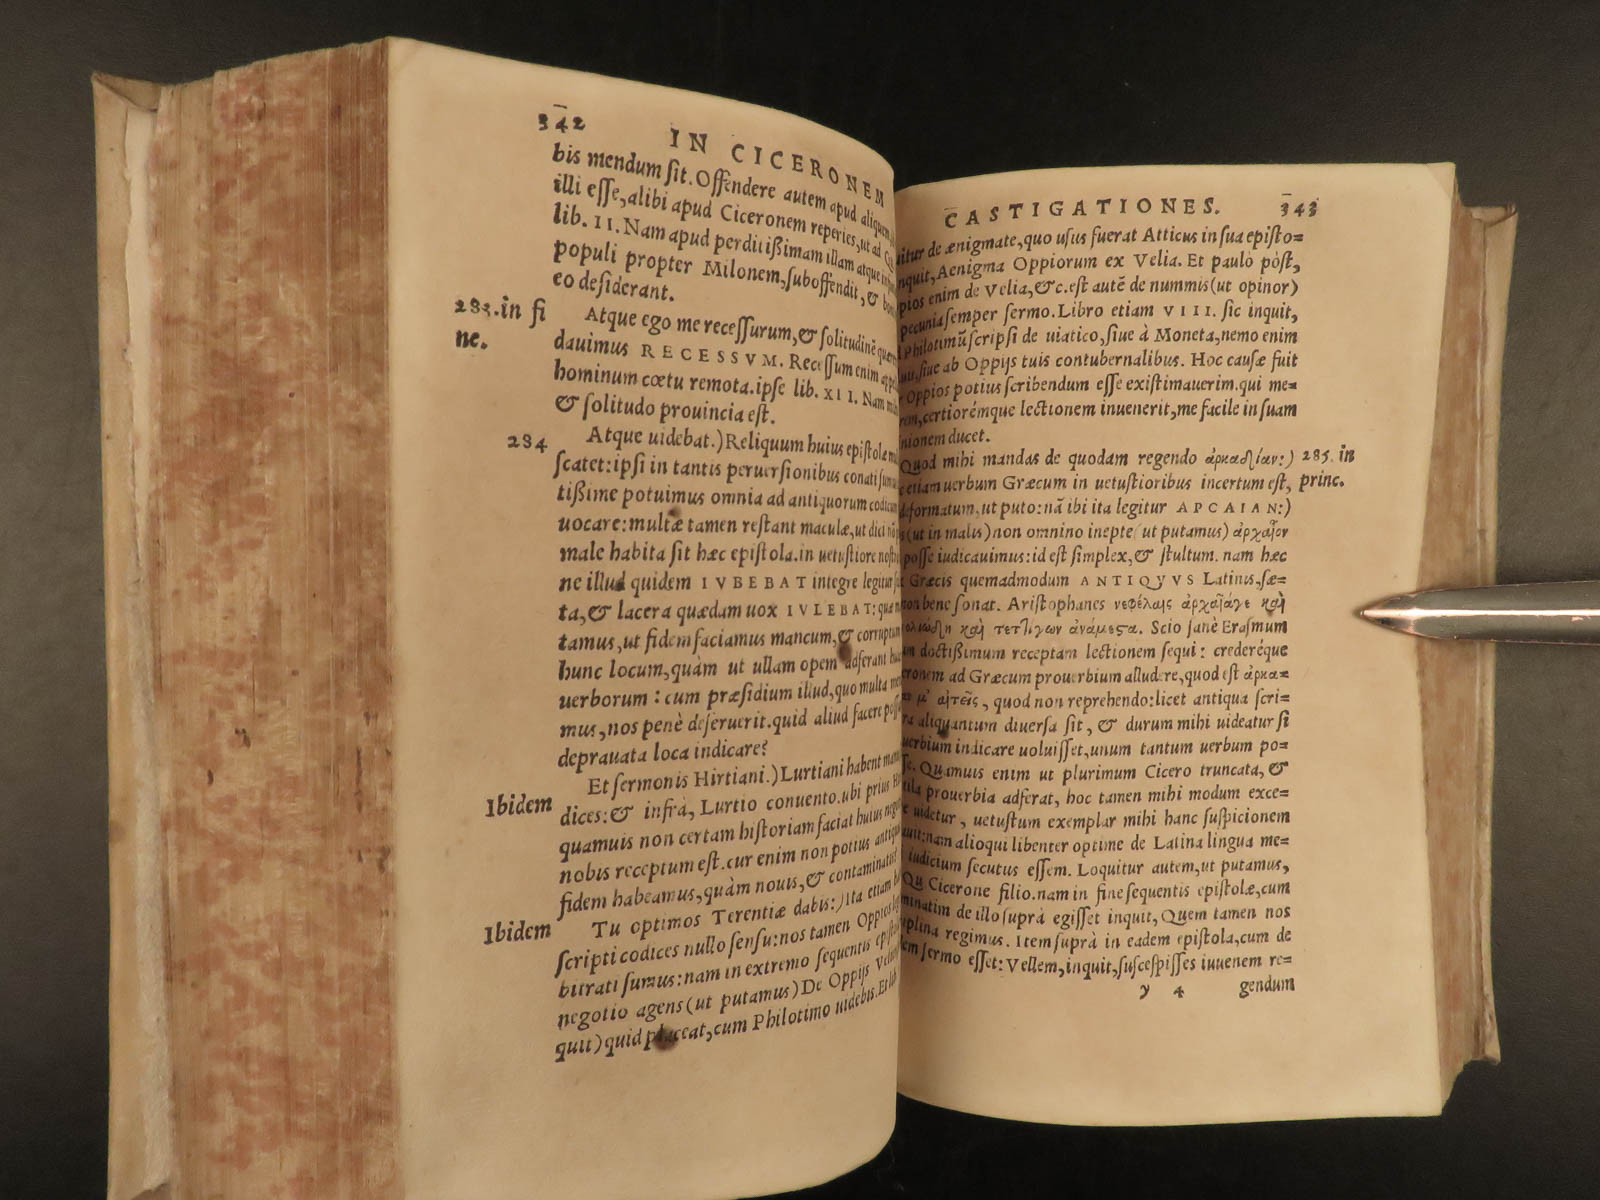 342
IN CICERONEM
bis mendum sit. Offendere autem apud aliquem
illi esse, alibi apud Ciceronem reperies, ut ad
lib. II. Nam apud perditißimam illam atque
populi propter Milonem, suboffendit, &
eo desiderant.
283. in fi
ne.
Atque ego me recessurum, & solitudinē
dauimus RECESSVM. Recessum enim
hominum cœtu remota. ipse lib. XII. Nam
& solitudo prouincia est.
284
Atque uidebat.) Reliquum huius epistolæ
scatet: ipsi in tantis peruersionibus conati
tißime potuimus omnia ad antiquorum codicum
uocare: multæ tamen restant maculæ, ut dici
male habita sit hæc epistola. in uetustiore
ne illud quidem IVBEBAT integre legitur
ta, & lacera quædam uox IVLEBAT:
tamus, ut fidem faciamus mancum, & corruptum
hunc locum, quàm ut ullam opem adferant
uerborum: cum præsidium illud, quo multa
mus, nos penè deseruerit. quid aliud facere
deprauata loca indicare?
Ibidem
Et sermonis Hirtiani.) Lurtiani habent
dices: & infrà, Lurtio conuento. ubi prius
quamuis non certam historiam faciat huius
nobis receptum est. cur enim non potius
fidem habeamus, quàm nouis, &
Ibidem
Tu optimos Terentiæ dabis:) Ita etiam
scripti codices nullo sensu: nos tamen Oppios
bitrati sumus: nam in extremo sequentis
negotio agens (ut putamus) De Oppijs
quit) quid placeat, cum Philotimo uidebis. Et
CASTIGATIONES.
343
de ænigmate, quo usus fuerat Atticus in sua episto=
inquit, Aenigma Oppiorum ex Velia. Et paulò pòst,
enim de Velia, &c. est autē de nummis (ut opinor)
pecunia semper sermo. Libro etiam VIII. sic inquit,
Philotimū scripsi de uiatico, siue à Moneta, nemo enim
siue ab Oppijs tuis contubernalibus. Hoc causæ fuit
Oppios potius scribendum esse existimauerim. qui me=
certiorémque lectionem inuenerit, me facile in suam
ducet.
Quod mihi mandas de quodam regendo ἀρκαδίαν:)
285. in
princ.
etiam uerbum Græcum in uetustioribus incertum est,
deformatum, ut puto: nā ibi ita legitur APCAIAN:)
(ut in malis) non omnino inepte (ut putamus) ἀρχαῖον
posse iudicauimus: id est simplex, & stultum. nam hæc
Græcis quemadmodum ANTIQVVS Latinis, sæ=
non bene sonat. Aristophanes νεφέλαις ἀρχαϊάγε καὶ
καὶ τετίγων ἀνάμεστα. Scio sanè Erasmum
doctißimum receptam lectionem sequi: crederéque
ad Græcum prouerbium alludere, quod est ἀρκα=
μ' αἰτεῖς, quod non reprehendo: licet antiqua scri=
aliquantum diuersa sit, & durum mihi uideatur si
indicare uoluisset, unum tantum uerbum po=
Quamuis enim ut plurimum Cicero truncata, &
prouerbia adferat, hoc tamen mihi modum exce=
uidetur, uetustum exemplar mihi hanc suspicionem
nam alioqui libenter optime de Latina lingua me=
iudicium secutus essem. Loquitur autem, ut putamus,
Cicerone filio. nam in fine sequentis epistolæ, cum
de illo suprà egisset inquit, Quem tamen nos
regimus. Item suprà in eadem epistola, cum de
sermo esset: Vellem, inquit, suscepisses iuuenem re=
y 4
gendum